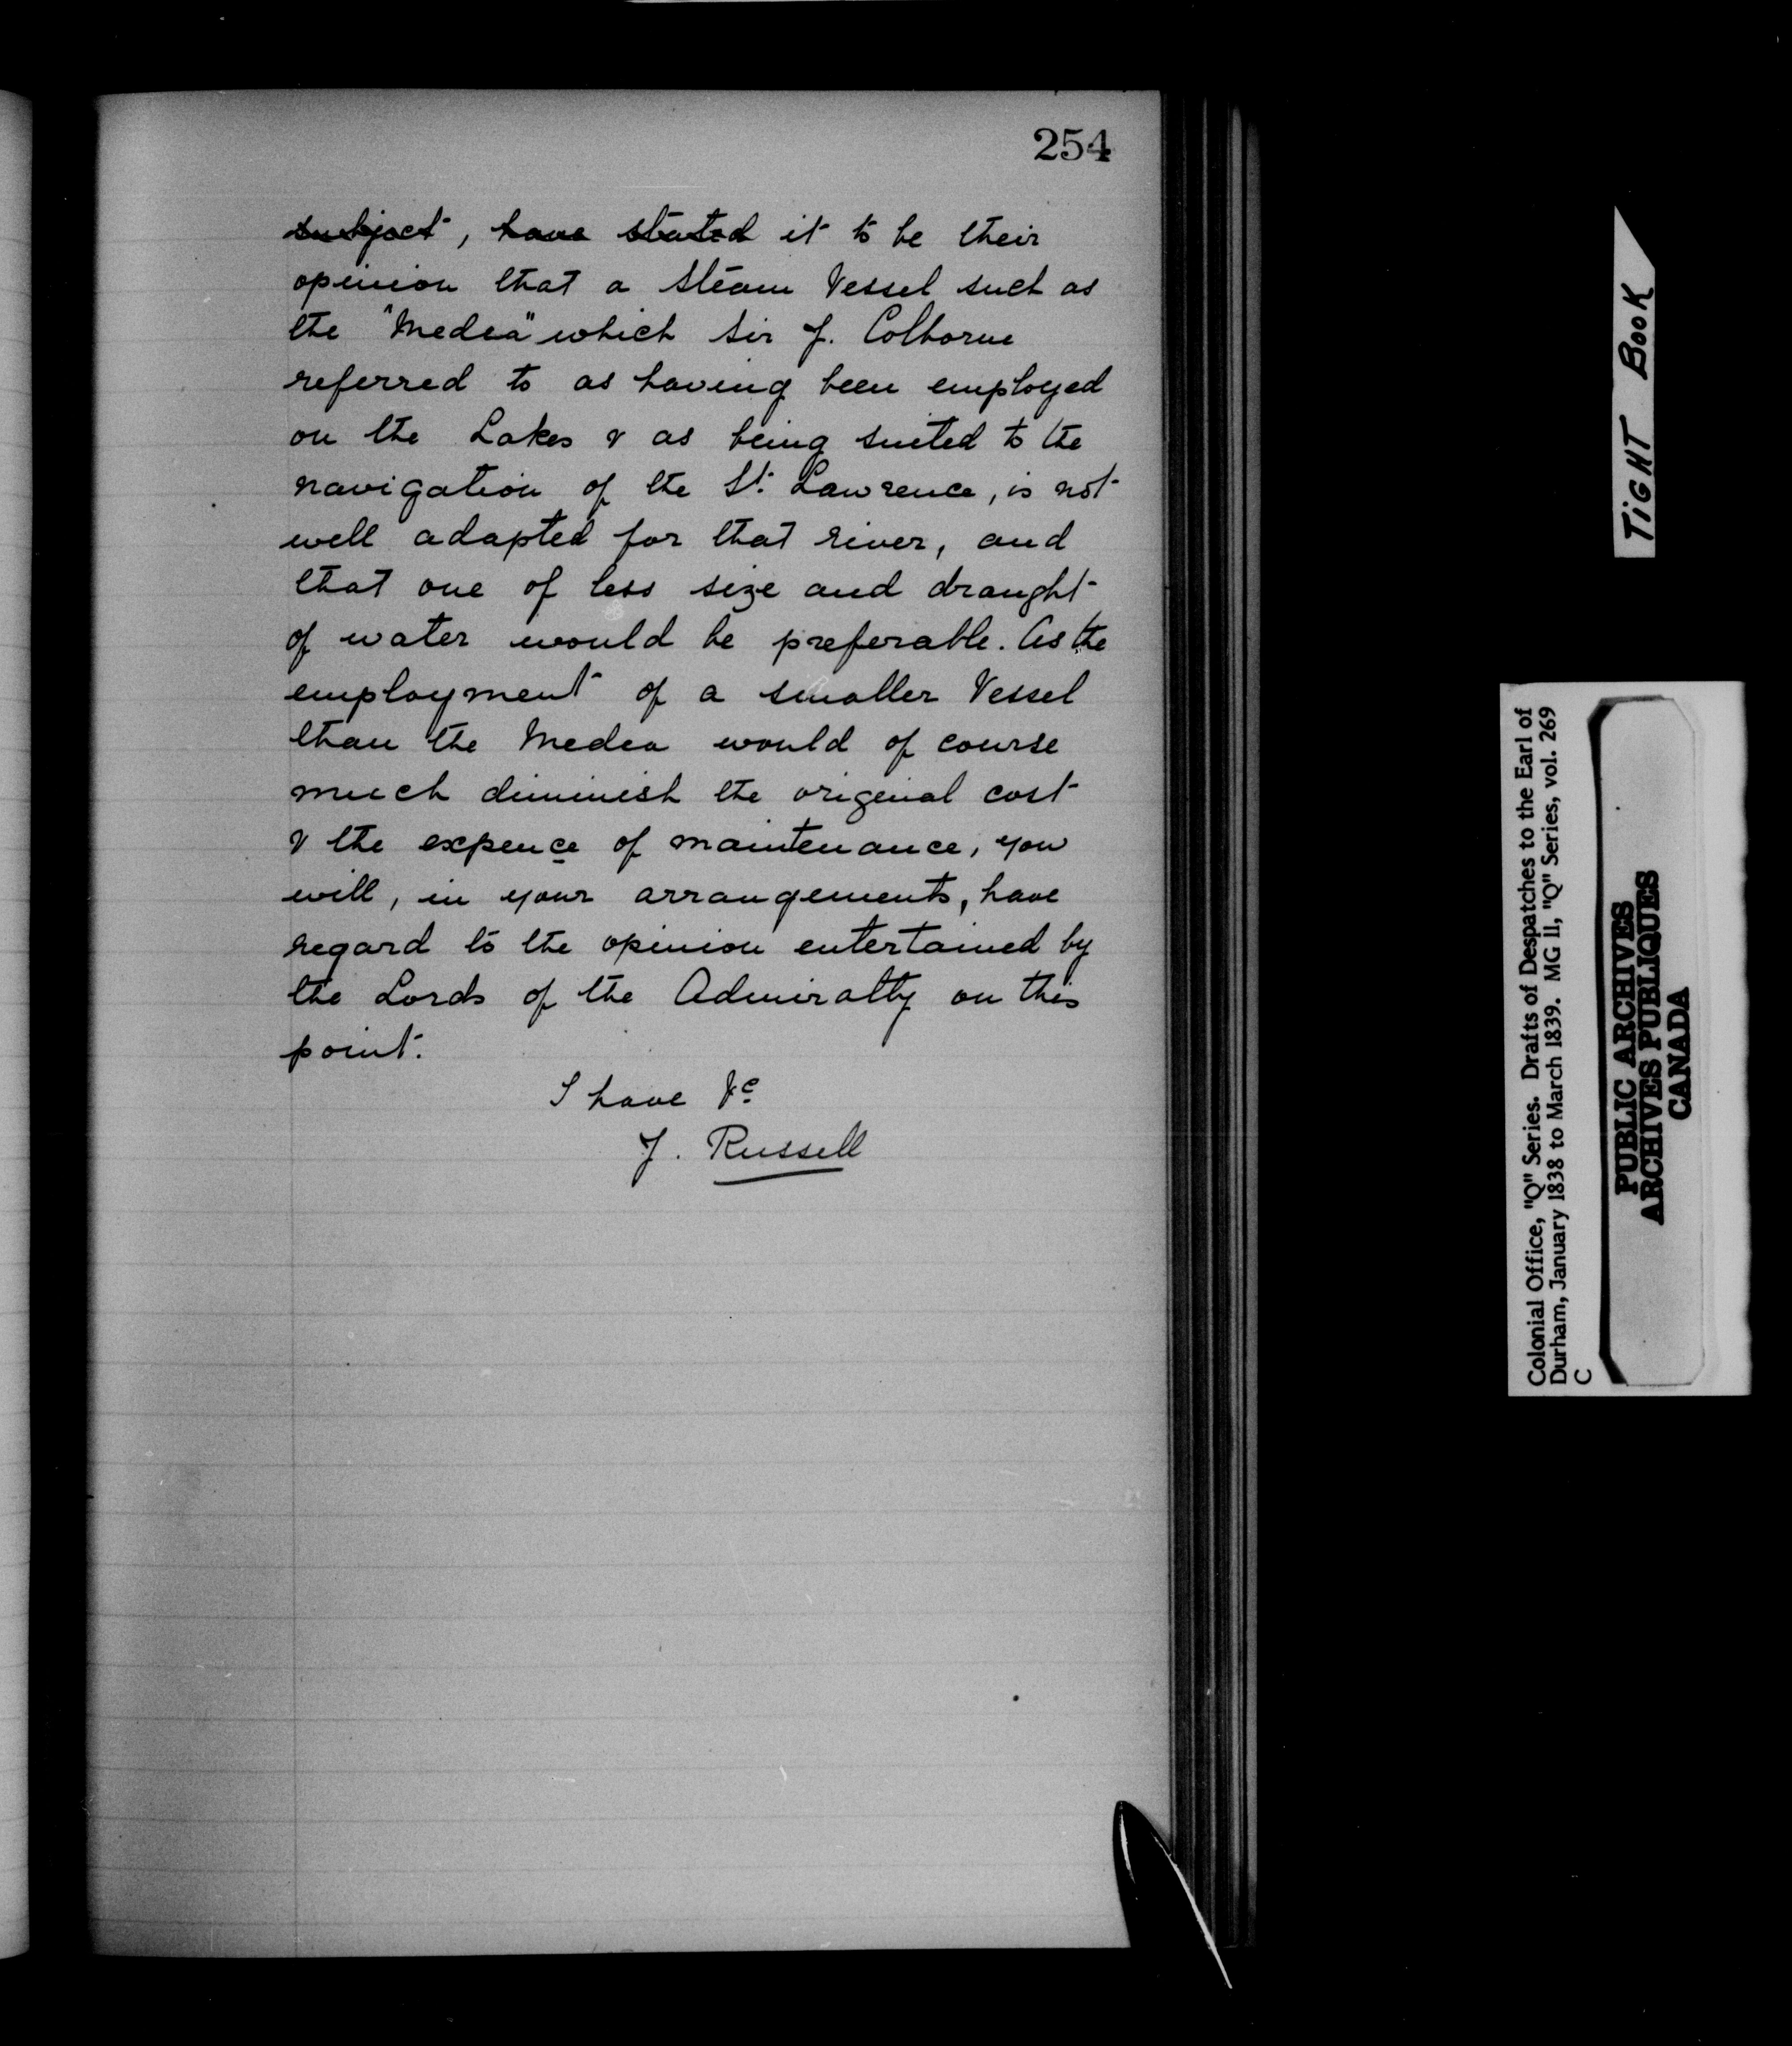 254
subject, have stated it to be their
opinion that a Steam Vessel such as
the "Medea" which Sir J. Colborne
referred to as having been employed
on the Lakes & as being suited to the
navigation of the St. Lawrence, is not
well adapted for that river, and
that one of less size and draught
of water would be preferable. As the
employment of a smaller Vessel
than the Medea would of course
much diminish the original cost
& the expence of maintenance, you
will, in your arrangements, have
regard to the opinion entertained by
the Lords of the Admiralty on this
point.
I have &c
J. Russell
TIGHT BOOK
Colonial Office, "Q" Series. Drafts of Despatches to the Earl of
Durham, January 1838 to March 1839. MG 11, "Q" Series, vol. 269
C
PUBLIC ARCHIVES
ARCHIVES PUBLIQUES
CANADA